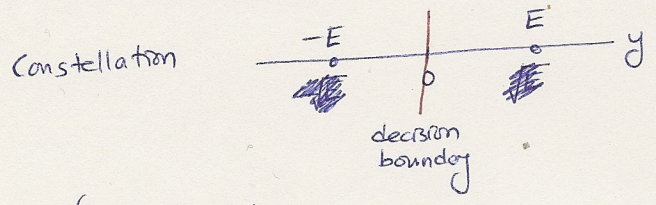 -E
E
Constellation
y
0
decision
boundary